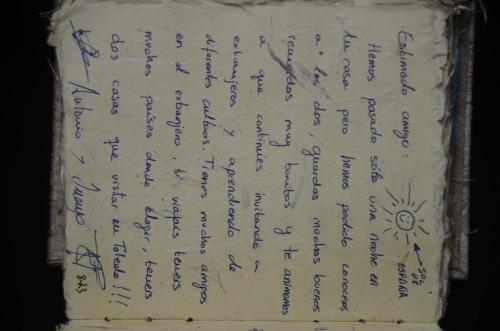 Estimado amigo:
SOL DE ESPAÑA
Hemos pasado sólo una noche en
tu casa pero hemos podido conoceros
a los dos, guardas muchos buenos
recuerdos muy bonitos y te animamos
a que continues invitando a
extranjeros y aprendiendo de
diferentes culturas. Tienes muchos amigos
en el extranjero, si viajais teneis
muchos países donde elegir, teneis
dos casas que visitar en Toledo!!!
Antonio y